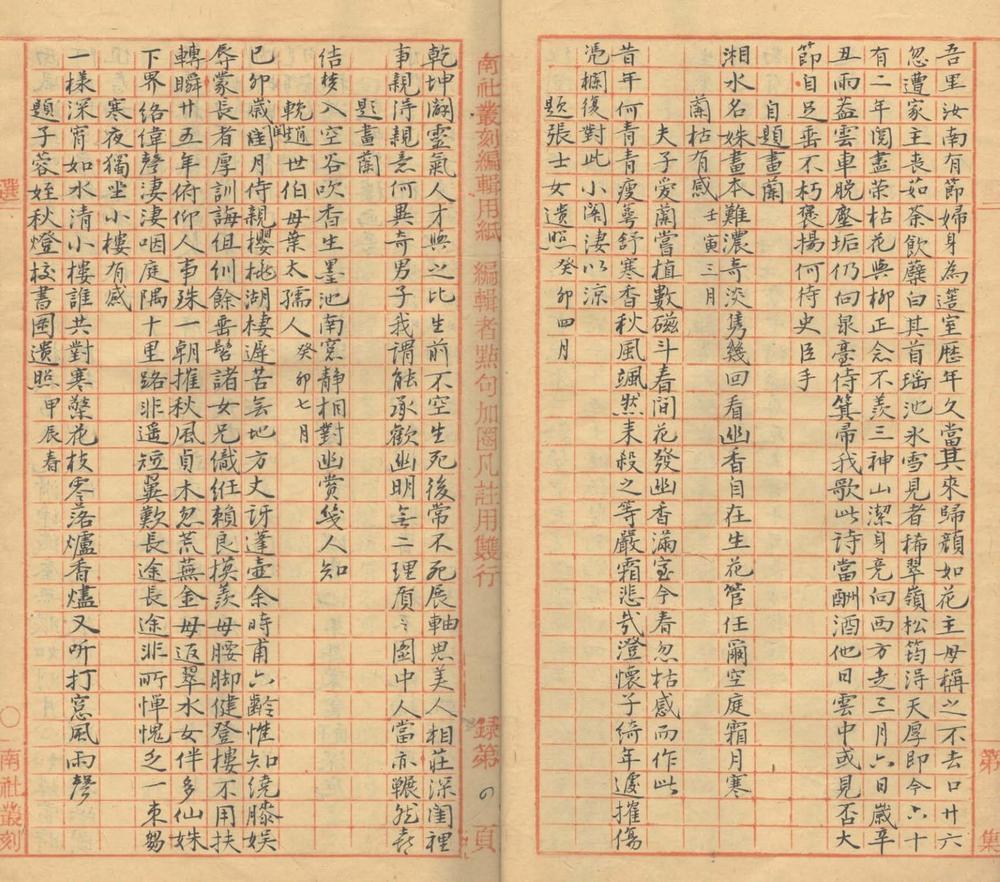 吾里汝南有節婦身為簉室歷年久當其來歸顏如花主母稱之不去口廿六
忽遭家主喪茹荼飲蘗白其首瑤池氷雪見者稀翠嶺松筠得天厚即今六十
有二年閱盡荣枯花與柳正念不羨三神山潔身竟向西方走三月六日歲辛
丑雨葢雲車脫塵垢仍向泉臺侍箕帚我歌此詩當酬酒他日雲中或見否大
節自足垂不朽褒揚何待史臣手
自題畫蘭
湘水名姝畫本難濃奇淡雋幾回看幽香自在生花管任爾空庭霜月寒
蘭枯有感 壬寅三月
夫子愛蘭嘗植數磁斗春间花發幽香滿室今春忽枯感而作此
昔年何青青瘦萼舒寒香秋風颯然来殺之等嚴霜悲哉澄懷子綺年遽摧傷
憑欄復對此小閣淒以涼
題張士女遺照 癸卯四月
南社叢刻編輯用紙 編輯者點句加圈凡註用雙行 録第 頁
乾坤闢靈氣人才與之比生前不空生死後常不死展軸思美人相莊深閨裡
事親得親意何異奇男子我謂能承歡幽明無二理質之圖中人當亦囅然喜
題畫蘭
佶梭入空谷吹香生墨池南窓静相對幽賞幾人知
輓趙世伯母葉太孺人 癸卯七月
已卯歲閏月侍親櫻桃湖棲遲苦無地方丈訝蓬壺余時甫六齡惟知繞膝娛
辱蒙長者厚訓誨俎側餘垂髫諸女兄儀絍賴良模羨母腰脚健登樓不用扶
轉瞬廿五年俯仰人事殊一朝摧秋風貞木忽荒蕪金母返翠水女伴多仙姝
下界絡偉聲淒淒咽庭隅十里路非遥短翼歎長途長途非所憚愧乏一束芻
寒夜獨坐小樓有感
一樣深宵如水清小樓誰共對寒檠花枝零落爐香燼又听打窓風雨聲
題子蓉姪秋燈校書圖遺照 甲辰春
選 南社叢刻
第 集